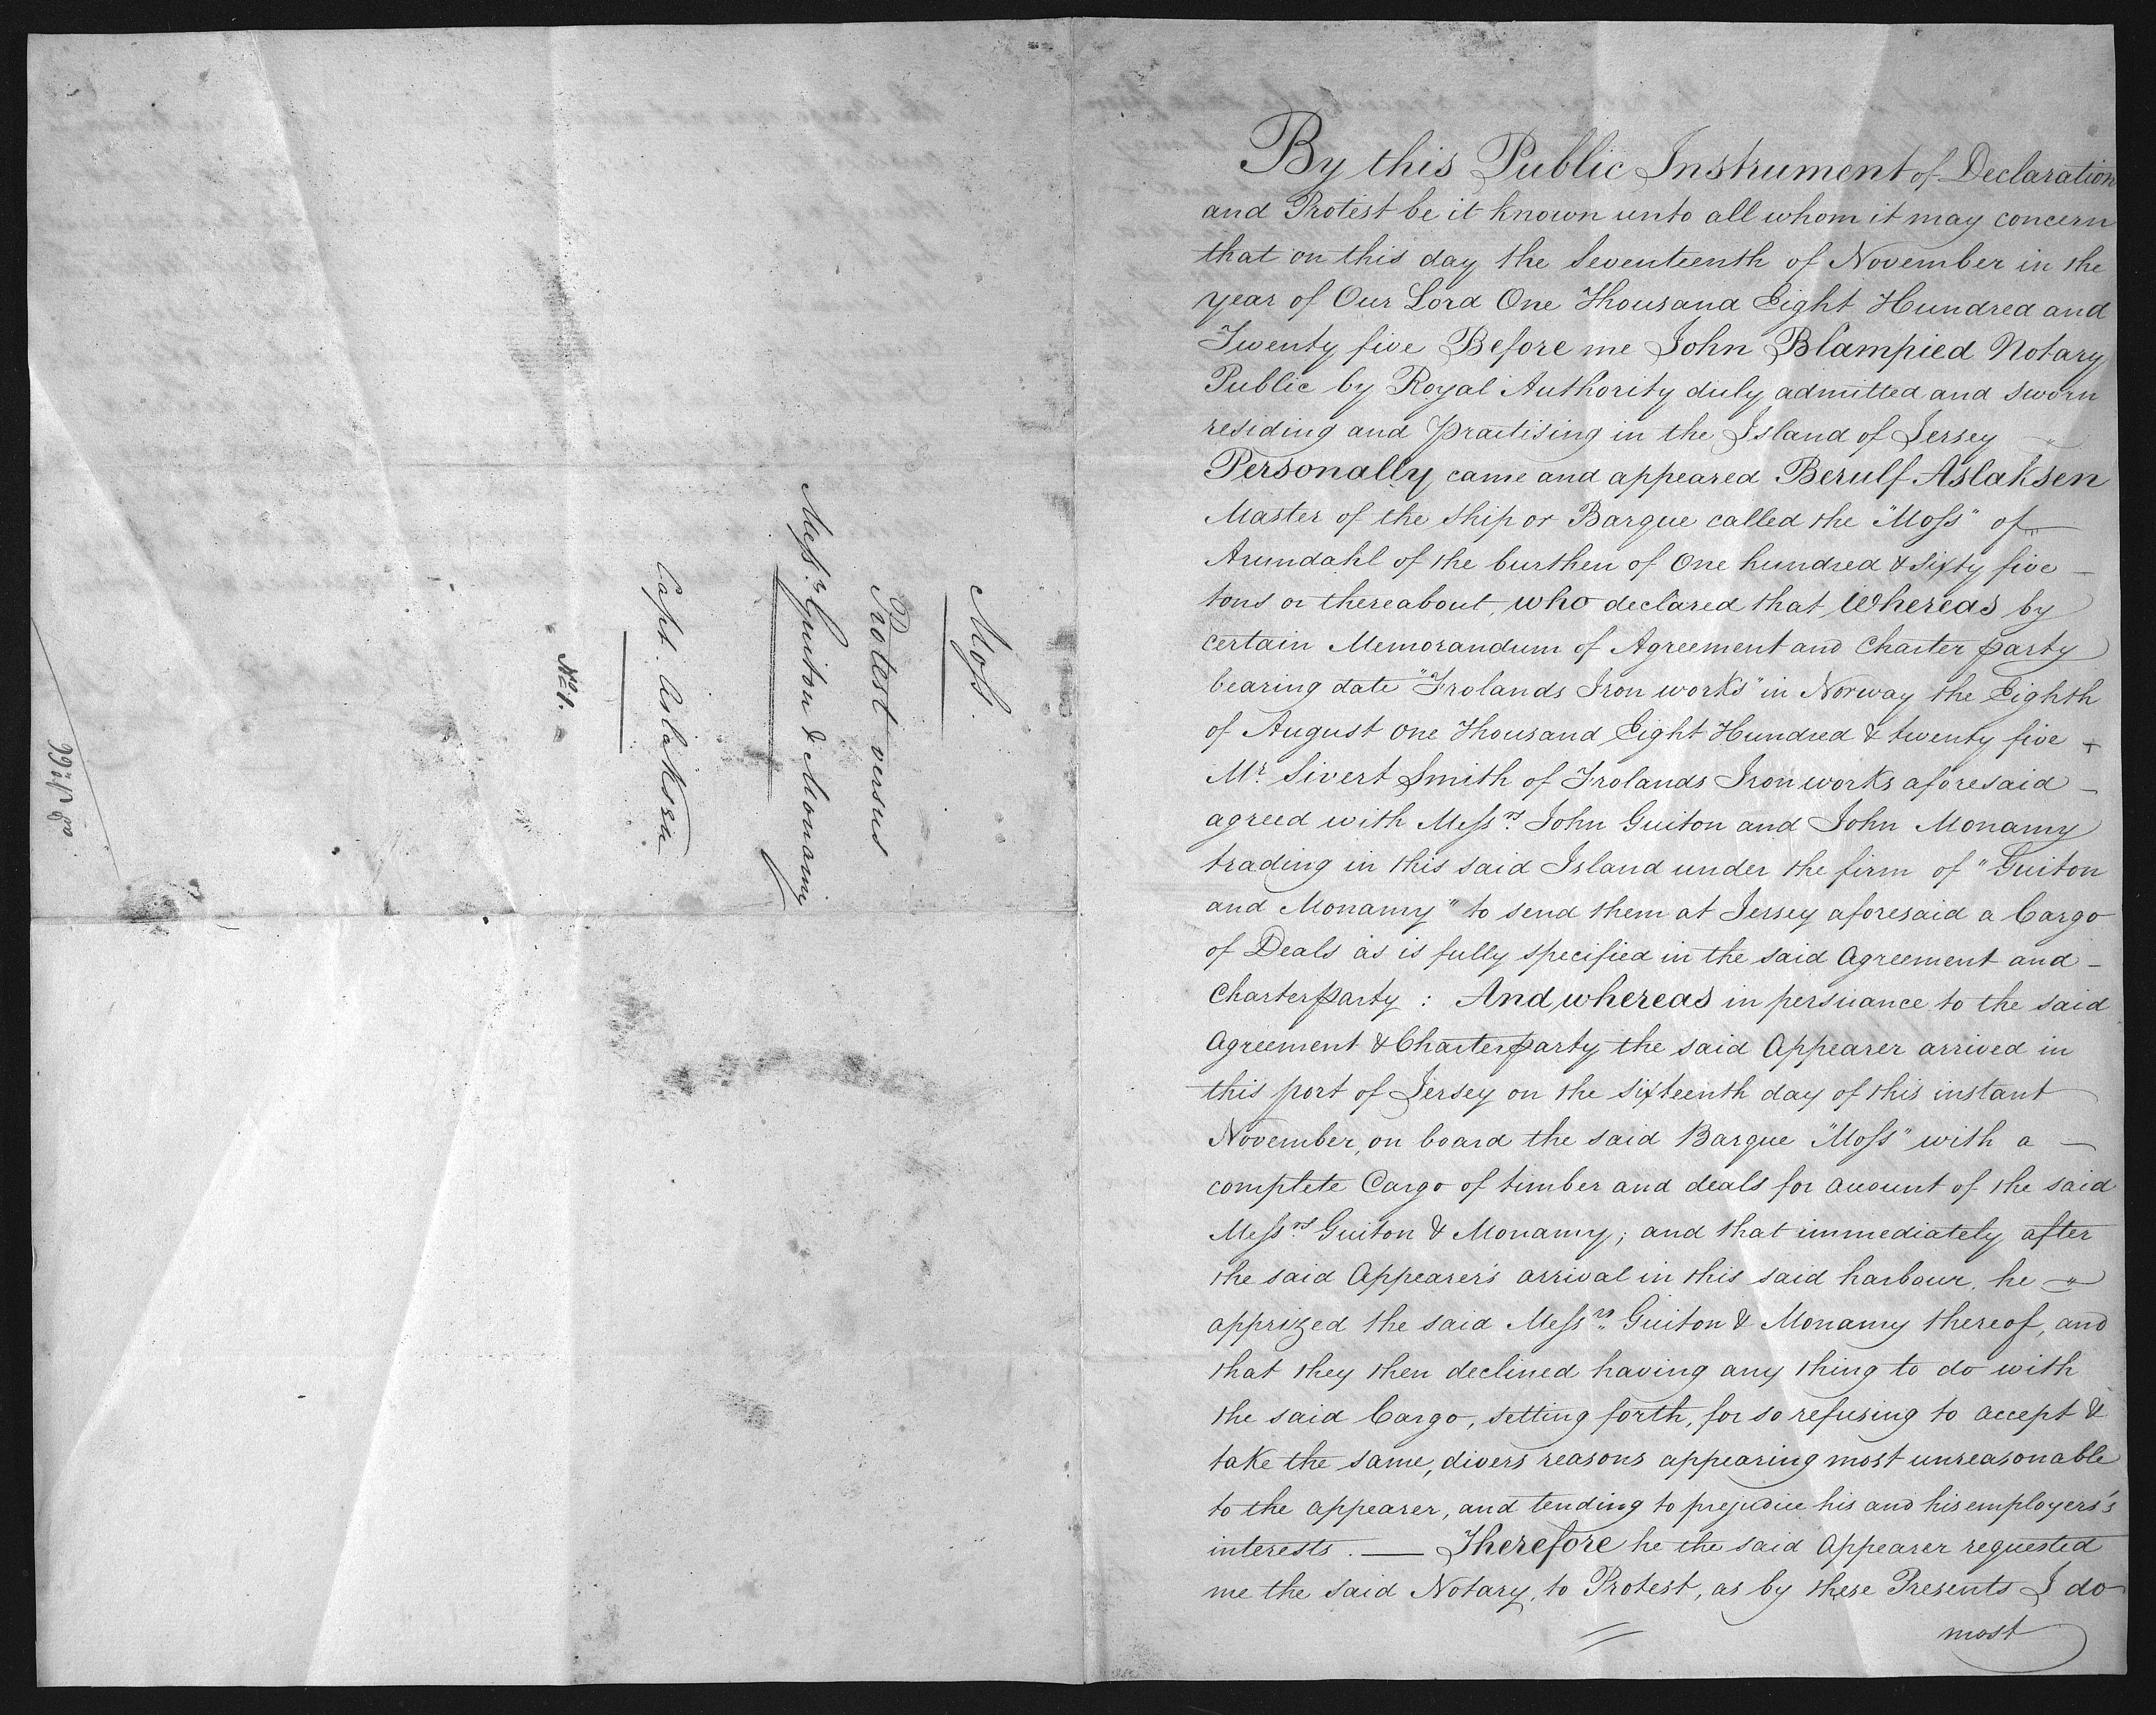 Moſs.
Protest versus
Meſs.rs Guiton & Monamy
Capt. Aslaksen
No. 1.
ad No 66
By this Public Instrument of Declaration
and Protest be it known unto all whom it may concern
that on this day the Seventeenth of November in the
year of Our Lord One Thousand Eight Hundred and
Twenty five Before me John Blampied Notary
Public by Royal Authority duly admitted and sworn
residing and practising in the Island of Jersey
Personally came and appeared Berulf Aslaksen
Master of the Ship or Barque called the "Moſs" of
Arundahl of the burthen of One hundred & sixty five
tons or thereabout, who declared that Whereas by
certain Memorandum of Agreement and Charter party
bearing date "Frolands Iron works" in Norway the Eighth
of August One Thousand Eight Hundred & twenty five
Mr. Sivert Smith of Frolands Iron works aforesaid
agreed with Meſs.rs John Guiton and John Monamy
trading in this said Island under the firm of "Guiton
and Monamy" to send them at Jersey aforesaid a Cargo
of Deals as is fully specified in the said Agreement and
Charterparty : And whereas in persuance to the said
Agreement & Charterparty the said Appearer arrived in
this port of Jersey on the sixteenth day of this instant
November, on board the said Barque "Moſs" with a
complete Cargo of timber and deals for account of the said
Meſs.rs Guiton & Monamy; and that immediately after
the said Appearer's arrival in this said harbour, he
apprized the said Meſs.rs Guiton & Monamy thereof, and
that they then declined having any thing to do with
the said Cargo, setting forth, for so refusing to accept &
take the same, divers reasons appearing most unreasonable
to the appearer, and tending to prejudice his and his employers's
interests. — Therefore he the said Appearer requested
me the said Notary, to Protest, as by these Presents I do
most